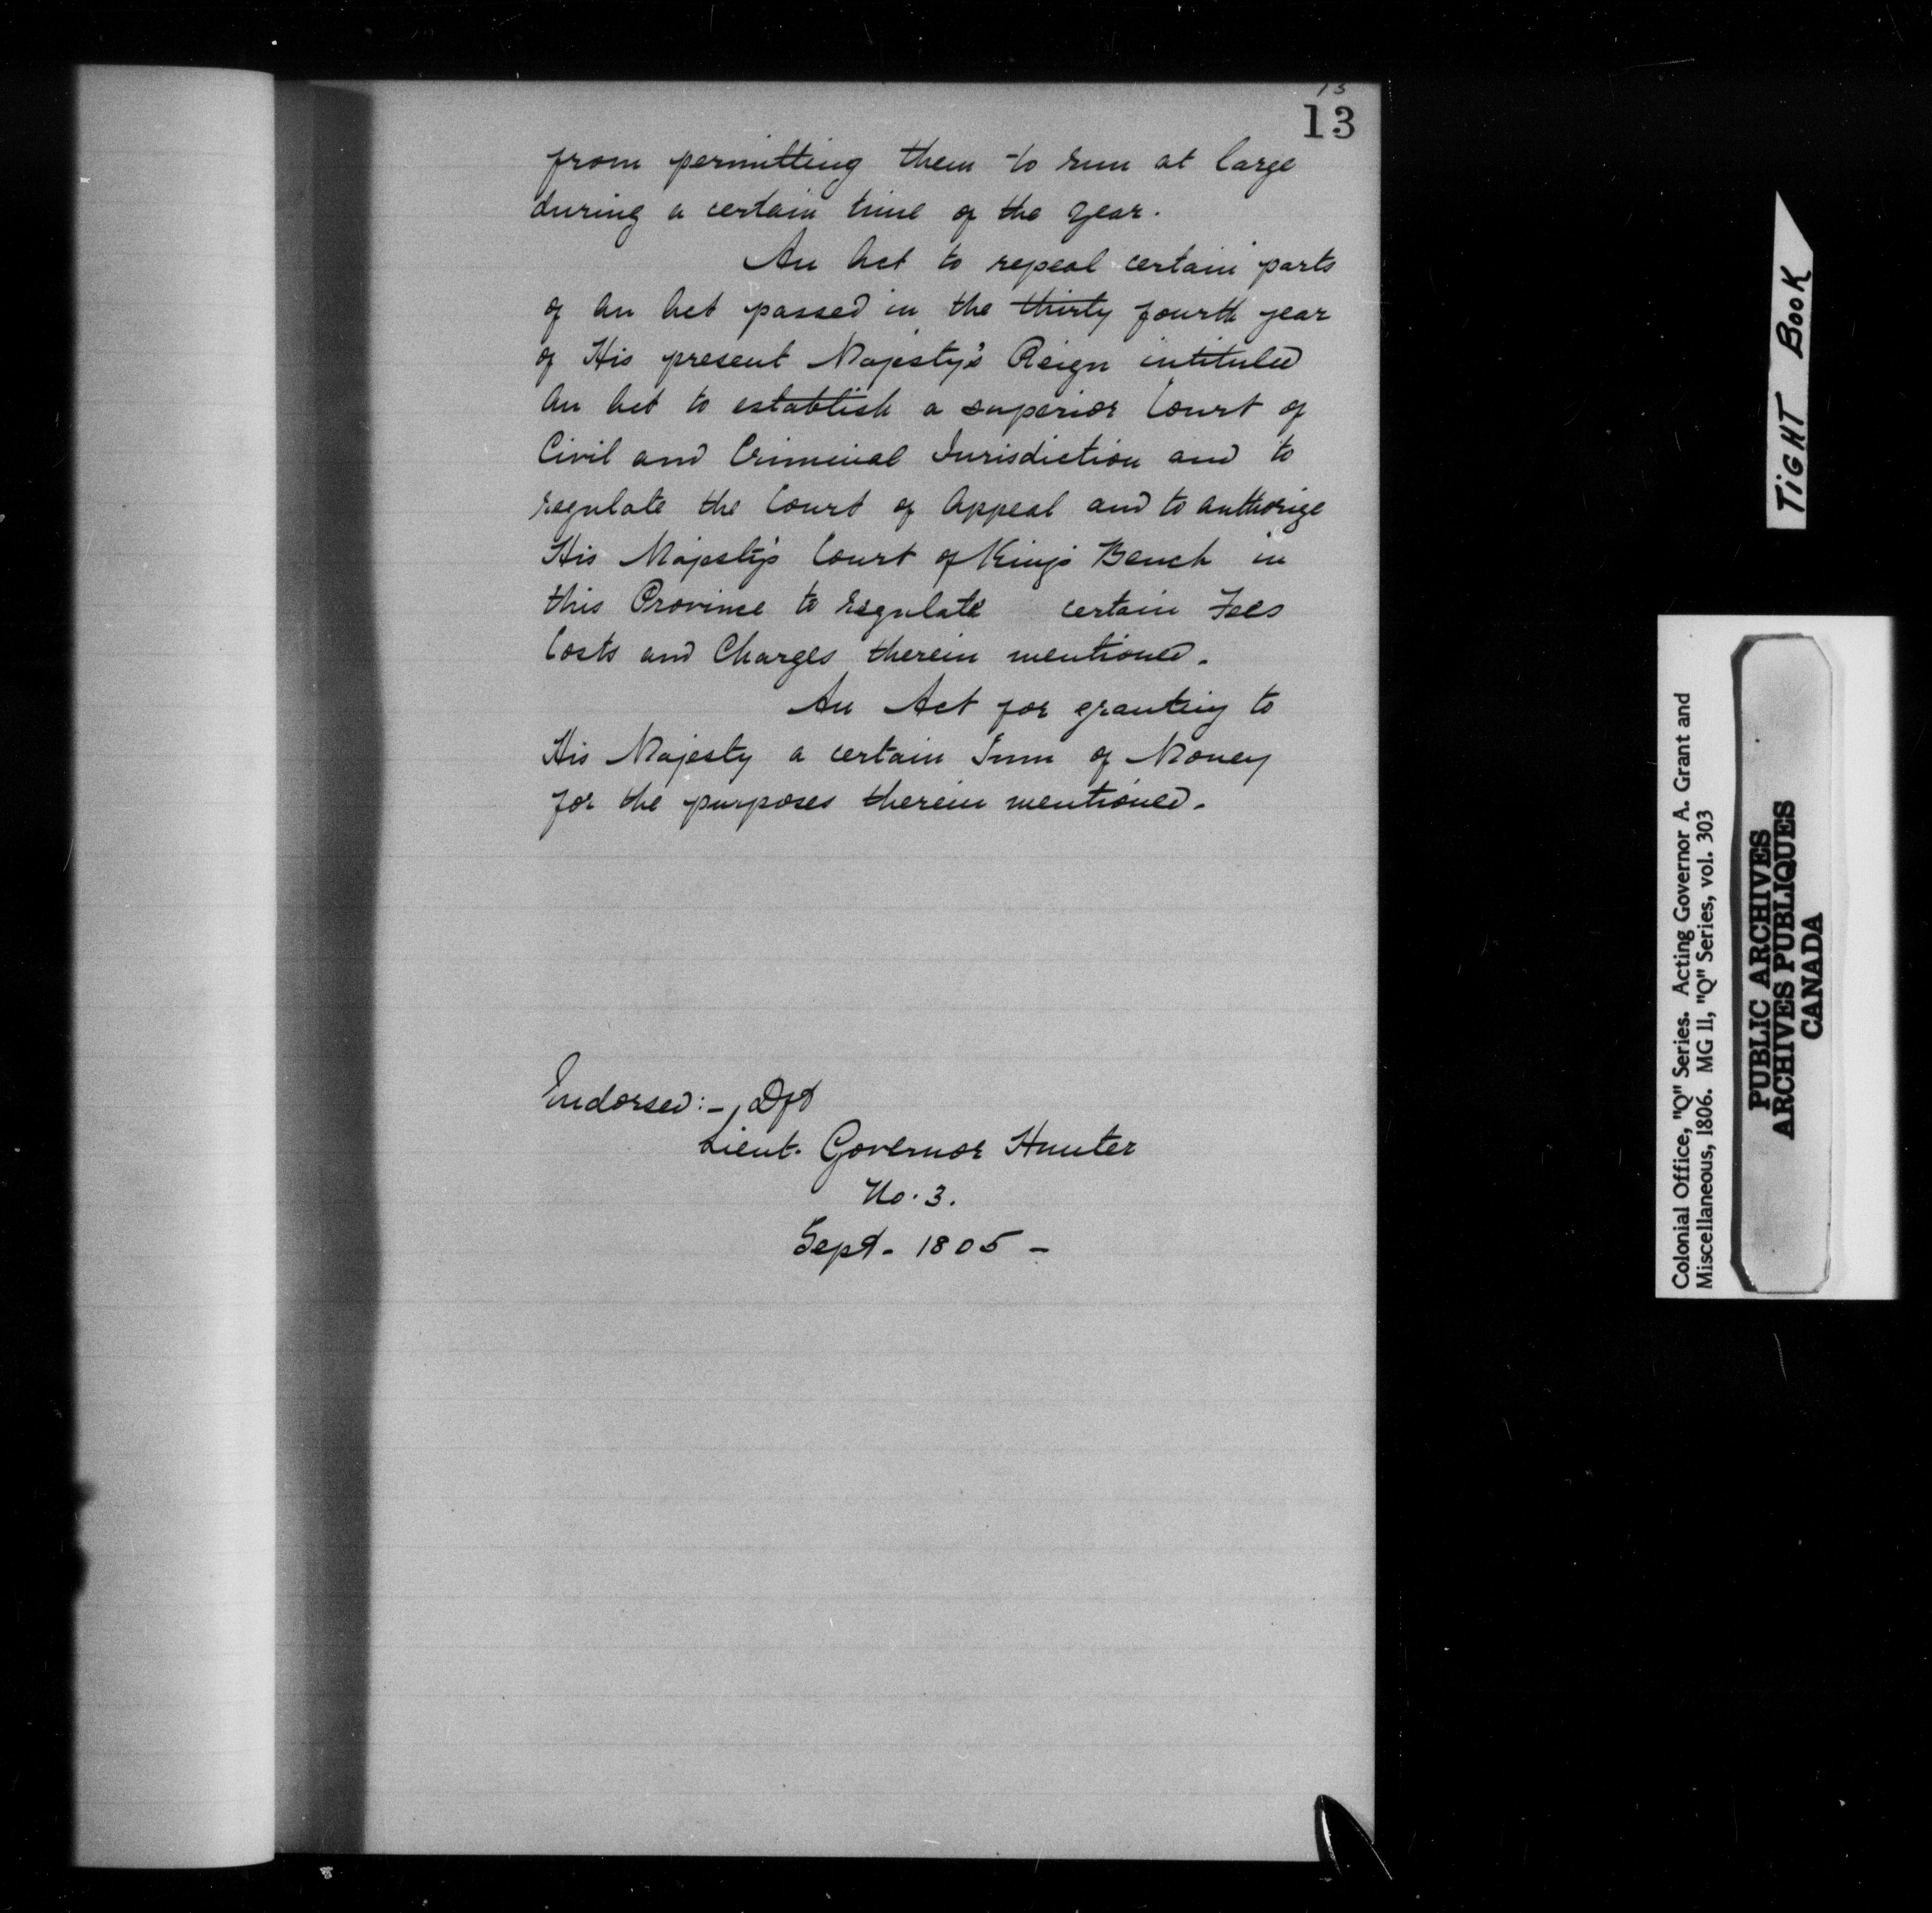 13
13
from permitting them to run at large
during a certain time of the year.
An Act to repeal certain parts
of An Act passed in the thirty fourth year
of His present Majesty's Reign intituled
An Act to establish a superior Court of
Civil and Criminal Jurisdiction and to
regulate the Court of Appeal and to authorize
His Majesty's Court of King's Bench in
this Province to regulate certain Fees
Costs and Charges therein mentioned.
An Act for granting to
His Majesty a certain Sum of Money
for the purposes therein mentioned.
Endorsed:- Dft
Lieut. Governor Hunter
No. 3.
Sept. 1805 -
TIGHT BOOK
Colonial Office, "Q" Series. Acting Governor A. Grant and
Miscellaneous, 1806. MG 11, "Q" Series, vol. 303
PUBLIC ARCHIVES
ARCHIVES PUBLIQUES
CANADA